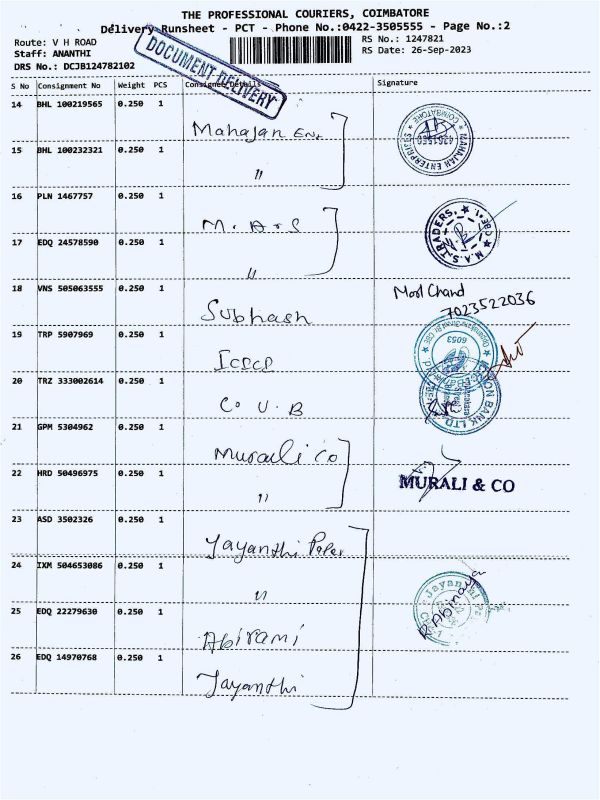 THE PROFESSIONAL COURIERS, COIMBATORE
Delivery Runsheet - PCT - Phone No.:0422-3505555 - Page No.:2
Route: V H ROAD
RS No.: 1247821
Staff: ANANTHI
RS Date: 26-Sep-2023
DRS No.: DCJB124782102
DOCUMENT DELIVERY
S No Consignment No Weight PCS Consignee Details Signature
14 BHL 100219565 0.250 1
Mahajan Ent
COIMBATORE
MAHAJAN ENTERPRISES
15 BHL 100232321 0.250 1
"
16 PLN 1467757 0.250 1
M. A. S
M.A.S. TRADERS, CBE-1.
17 EDQ 24578590 0.250 1
"
18 VNS 505063555 0.250 1
Subhash
Mool Chand
7023522036
19 TRP 5907969 0.250 1
ICICI
6053
20 TRZ 333002614 0.250 1
C U B
UNION BANK LTD.
21 GPM 5304962 0.250 1
Murali Co
22 HRD 50496975 0.250 1
"
MURALI & CO
23 ASD 3502326 0.250 1
Jayanthi Paper
24 IXM 504653086 0.250 1
"
Jayanthi
R. Abinaya
25 EDQ 22279630 0.250 1
Abirami
26 EDQ 14970768 0.250 1
Jayanthi